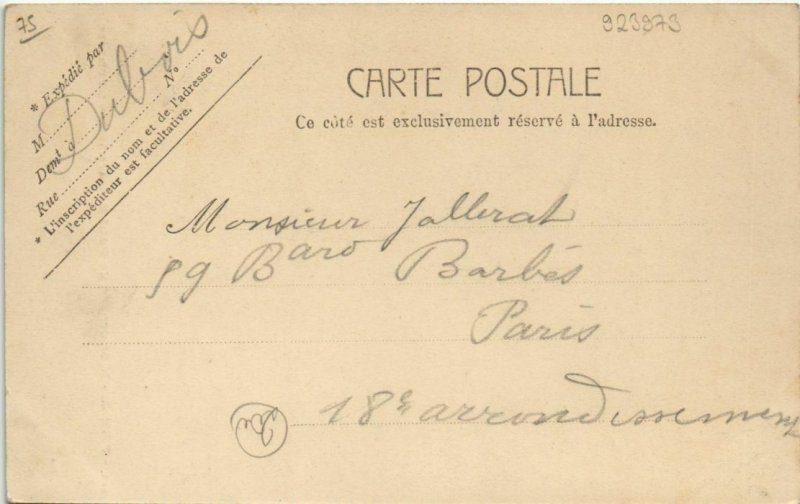 75
923973
* Expédié par
M. Dubois
Demt à
Rue N°
* L'inscription du nom et de l'adresse de
l'expéditeur est facultative.
CARTE POSTALE
Ce côté est exclusivement réservé à l'adresse.
Monsieur Jallerat
59 Bard Barbés
Paris
18e arrondissement